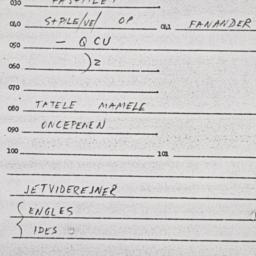 030
040 S+PLE/VE/ OP 041 FANANDER
050 - Q CU
060 )2
070
080 TATELE MAMELE
090 ONCEPENEN
100 101
JETVIDEREJNER
{ ENGLES
IDES